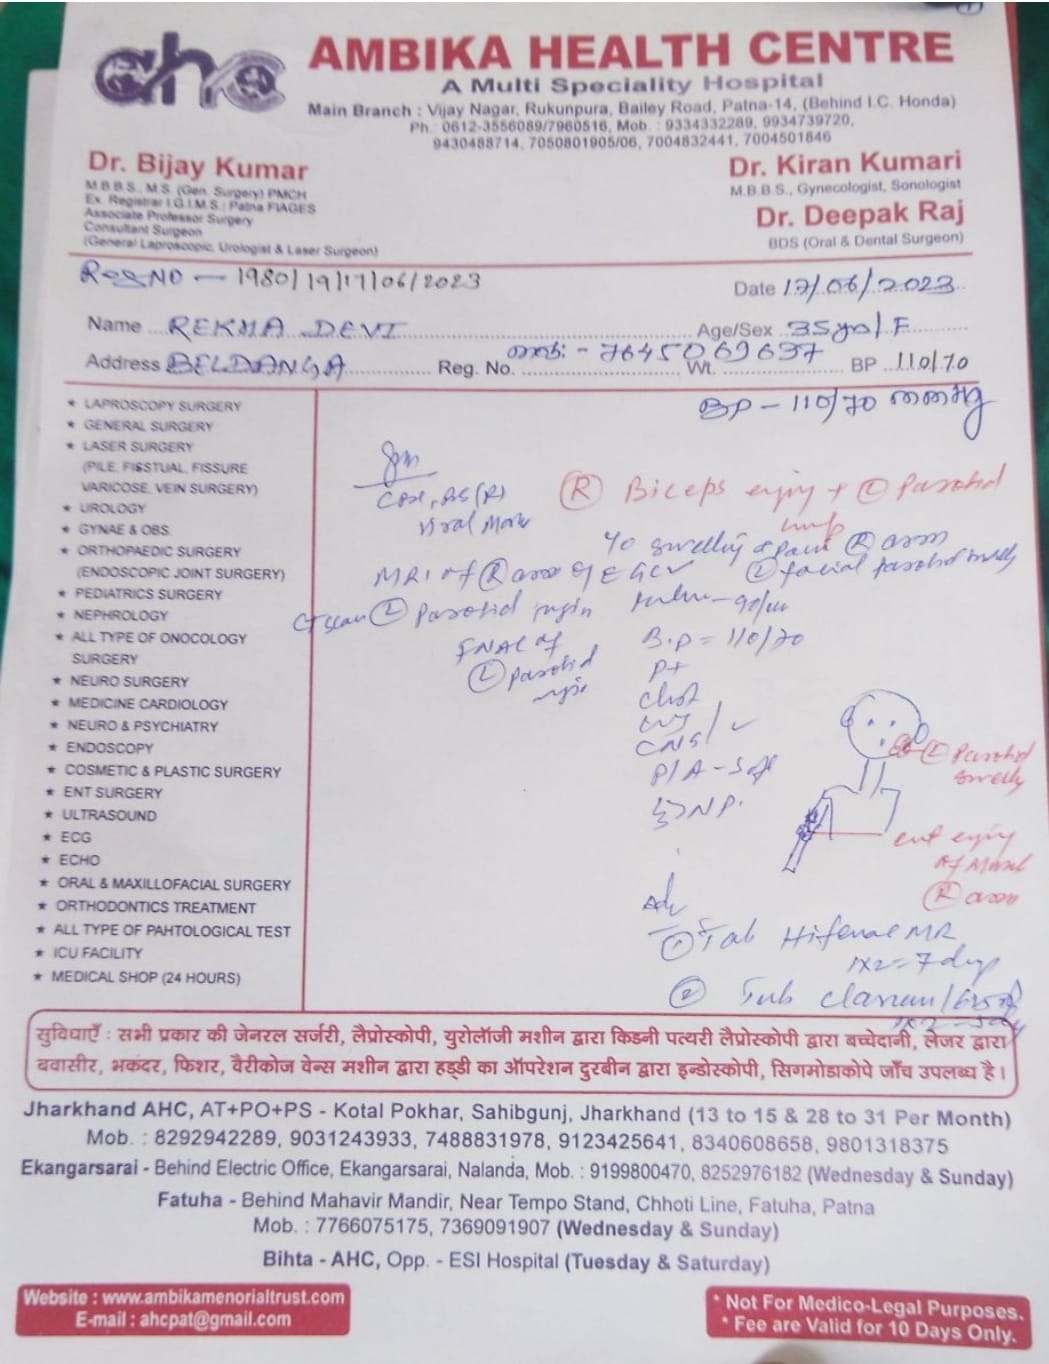 AMBIKA HEALTH CENTRE
A Multi Speciality Hospital
Main Branch : Vijay Nagar, Rukunpura, Bailey Road, Patna-14, (Behind I.C. Honda)
Ph.: 0612-3556089/7960516, Mob. : 9334332289, 9934739720,
9430488714, 7050801905/06, 7004832441, 7004501846
Dr. Bijay Kumar
M.B.B.S., M.S. (Gen. Surgery) PMCH
Ex. Registrar I.G.I.M.S., Patna FIAGES
Associate Professor Surgery
Consultant Surgeon
(General Laproscopic, Urologist & Laser Surgeon)
Dr. Kiran Kumari
M.B.B.S., Gynecologist, Sonologist
Dr. Deepak Raj
BDS (Oral & Dental Surgeon)
Reg NO - 1980/19/17/06/2023
Date 17/06/2023
Name REKHA DEVI Age/Sex 35 yrs/F
Address BELDANGA Reg. No. mob: - 7645069637 Wt. BP 110/70
BP - 110/70 mmHg
* LAPROSCOPY SURGERY
* GENERAL SURGERY
* LASER SURGERY
(PILE, FISSTUAL, FISSURE
VARICOSE, VEIN SURGERY)
* UROLOGY
* GYNAE & OBS.
* ORTHOPAEDIC SURGERY
(ENDOSCOPIC JOINT SURGERY)
* PEDIATRICS SURGERY
* NEPHROLOGY
* ALL TYPE OF ONOCOLOGY
SURGERY
* NEURO SURGERY
* MEDICINE CARDIOLOGY
* NEURO & PSYCHIATRY
* ENDOSCOPY
* COSMETIC & PLASTIC SURGERY
* ENT SURGERY
* ULTRASOUND
* ECG
* ECHO
* ORAL & MAXILLOFACIAL SURGERY
* ORTHODONTICS TREATMENT
* ALL TYPE OF PAHTOLOGICAL TEST
* ICU FACILITY
* MEDICAL SHOP (24 HOURS)
CBC, BS(R)
Viral Mark
(R) Biceps enjiy + (L) Parotid
swelling & pain (R) arm
(L) facial parotid swelly
MRI of (R) arm
CT scan (L) Parotid
FNAC of
(L) parotid
B.P = 110/70
P+
Chest
CVS
CNS
P/A - Soft
(L) Parotid
swelly
cut enjiy
of Muscl
(R) arm
Adv
(1) Tab Hifenac MR
1x2 = 7 days
(2) Tab Clavum/625
सुविधाएँ : सभी प्रकार की जेनरल सर्जरी, लैप्रोस्कोपी, युरोलॉजी मशीन द्वारा किडनी पत्थरी लैप्रोस्कोपी द्वारा बच्चेदानी, लेजर द्वारा
बवासीर, भकंदर, फिशर, वैरीकोज वेन्स मशीन द्वारा हड्डी का ऑपरेशन दुरबीन द्वारा इन्डोस्कोपी, सिगमोडाकोपे जाँच उपलब्ध है।
Jharkhand AHC, AT+PO+PS - Kotal Pokhar, Sahibgunj, Jharkhand (13 to 15 & 28 to 31 Per Month)
Mob. : 8292942289, 9031243933, 7488831978, 9123425641, 8340608658, 9801318375
Ekangarsarai - Behind Electric Office, Ekangarsarai, Nalanda, Mob. : 9199800470, 8252976182 (Wednesday & Sunday)
Fatuha - Behind Mahavir Mandir, Near Tempo Stand, Chhoti Line, Fatuha, Patna
Mob. : 7766075175, 7369091907 (Wednesday & Sunday)
Bihta - AHC, Opp. - ESI Hospital (Tuesday & Saturday)
Website : www.ambikamenorialtrust.com
E-mail : ahcpat@gmail.com
* Not For Medico-Legal Purposes.
* Fee are Valid for 10 Days Only.